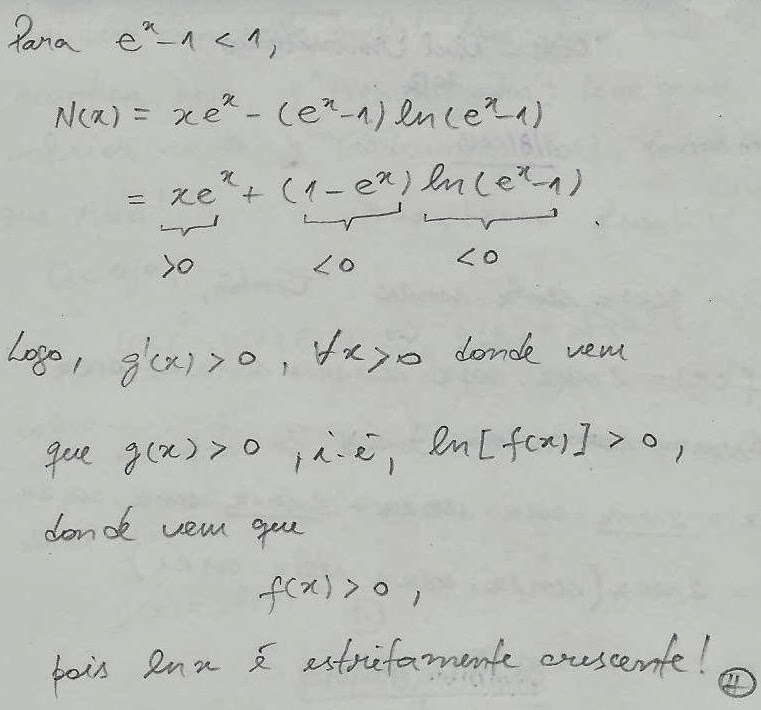 Para eˣ-1 < 1,
N(x) = xeˣ - (eˣ-1) ln(eˣ-1)
= xeˣ + (1-eˣ) ln(eˣ-1).
>0 <0 <0
Logo, g'(x) > 0, ∀x>0 donde vem
que g(x) > 0, i.é, ln[f(x)] > 0,
donde vem que
f(x) > 0,
pois ln x é estritamente crescente!